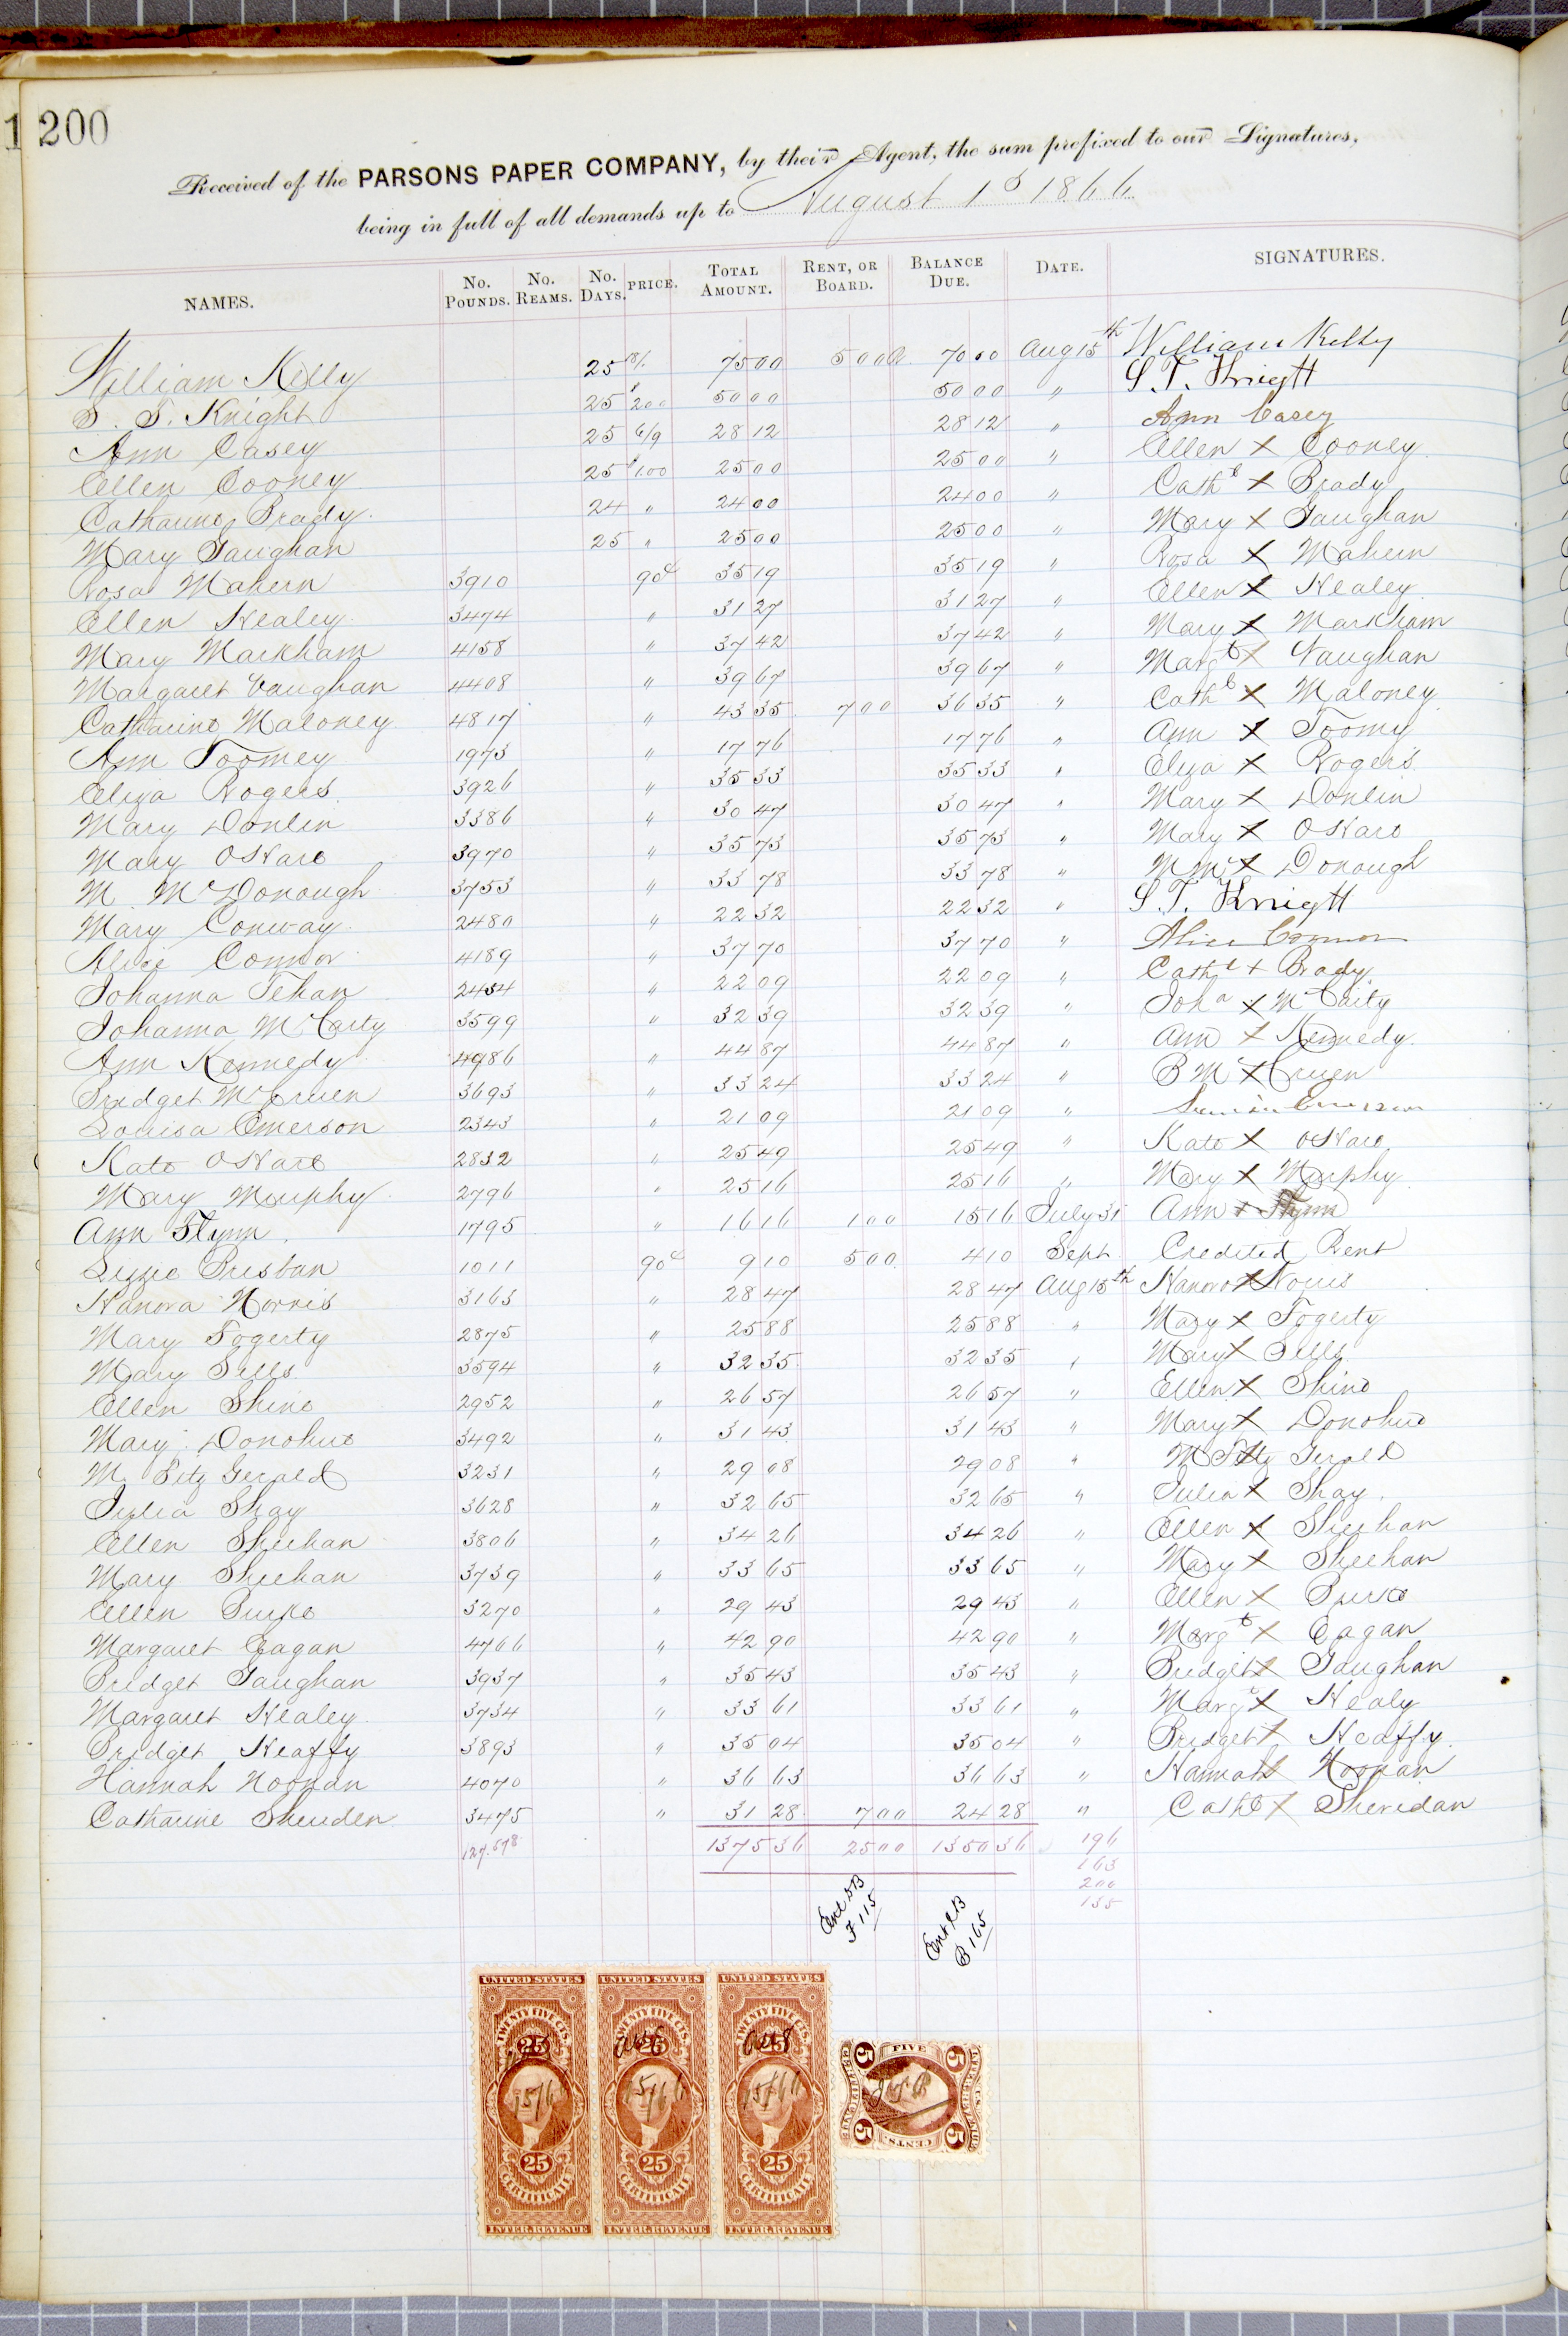 1 200
Received of the PARSONS PAPER COMPANY, by their Agent, the sum prefixed to our Signatures,
being in full of all demands up to August 1st 1866
NAMES. No. POUNDS. No. REAMS. No. DAYS. PRICE. TOTAL AMOUNT. RENT, OR BOARD. BALANCE DUE. DATE. SIGNATURES.
William Kelly 25 18/. 75 00 5 00 70 00 Aug 15th William Kelly
S. T. Knight 25 $2 00 50 00 50 00 " S. T. Knigtt
Ann Casey 25 6/9 28 12 28 12 " Ann Casey
Ellen Cooney 25 $1.00 25 00 25 00 " Ellen X Cooney
Catharine Brady 24 " 24 00 24 00 " Cath e X Brady
Mary Gaughan 25 " 25 00 25 00 " Mary X Gaughan
Rosa Mahern 3910 90c 35 19 35 19 " Rosa X Mahern
Ellen Healey 3474 " 31 27 31 27 " Ellen X Healey
Mary Markham 4158 " 37 42 37 42 " Mary X Markham
Margaret Vaughan 4408 " 39 67 39 67 " Margt X Vaughan
Catharine Maloney 4817 " 43 35 7 00 36 35 " Cath e X Maloney
Ann Toomey 1973 " 17 76 17 76 " Ann X Toomy
Eliza Rogers 3926 " 35 33 35 33 " Eliza X Rogers
Mary Donlin 3386 " 30 47 30 47 " Mary X Donlin
Mary OHare 3970 " 35 73 35 73 " Mary X OHare
M McDonough 3753 " 33 78 33 78 " M Mc X Donough
Mary Conway 2480 " 22 32 22 32 " S. T. Knigtt
Alice Connor 4189 " 37 70 37 70 " Alice Connor
Johanna Tehan 2454 " 22 09 22 09 " Cath e + Brady
Johanna McCarty 3599 " 32 39 32 39 " Joh a X McCarty
Ann Kennedy 4986 " 44 87 44 87 " Ann X Kennedy
Bridget McGruen 3693 " 33 24 33 24 " B Mc X Gruen
Louisa Emerson 2343 " 21 09 21 09 " Emerson
Kate OHare 2832 " 25 49 25 49 " Kate X OHare
Mary Murphy 2796 " 25 16 25 16 " Mary X Murphy
Ann Flynn 1795 " 16 16 1 00 15 16 July 31 Ann + Flynn
Lizzie Brisban 1011 90c 9 10 5 00 4 10 Sept Credited Rent
Hanora Norris 3163 " 28 47 28 47 Aug 15th Hanora X Norris
Mary Fogerty 2875 " 25 88 25 88 " Mary X Fogerty
Mary Sells 3594 " 32 35 32 35 " Mary X Sells
Ellen Shine 2952 " 26 57 26 57 " Ellen X Shine
Mary Donohue 3492 " 31 43 31 43 " Mary X Donohue
M Fitz Gerald 3231 " 29 08 29 08 " M Fitz X Gerald
Julia Shay 3628 " 32 65 32 65 " Julia X Shay
Ellen Sheehan 3806 " 34 26 34 26 " Ellen X Sheehan
Mary Sheehan 3739 " 33 65 33 65 " Mary X Sheehan
Ellen Burke 3270 " 29 43 29 43 " Ellen X Burke
Margaret Eagan 4766 " 42 90 42 90 " Margt X Eagan
Bridget Gaughan 3937 " 35 43 35 43 " Bridget X Gaughan
Margaret Healey 3734 " 33 61 33 61 " Margt X Healy
Bridget Heaffy 3893 " 35 04 35 04 " Bridget X Heaffy
Hannah Noonan 4070 " 36 63 36 63 " Hannah X Noonan
Catharine Sheriden 3475 " 31 28 7 00 24 28 " Cath e X Sheridan
127.578 1375 36 25 00 1350 36 196
163
200
135
Ent DB F 115
Ent CB B 165
UNITED STATES UNITED STATES UNITED STATES
TWENTY FIVE CTS. TWENTY FIVE CTS. TWENTY FIVE CTS.
25 25 25
15/66 15/66 15/66
25 25 25
CERTIFICATE CERTIFICATE CERTIFICATE
INTER. REVENUE INTER. REVENUE INTER. REVENUE
FIVE CENTS.
5 5 5 5
CERTIFICATE